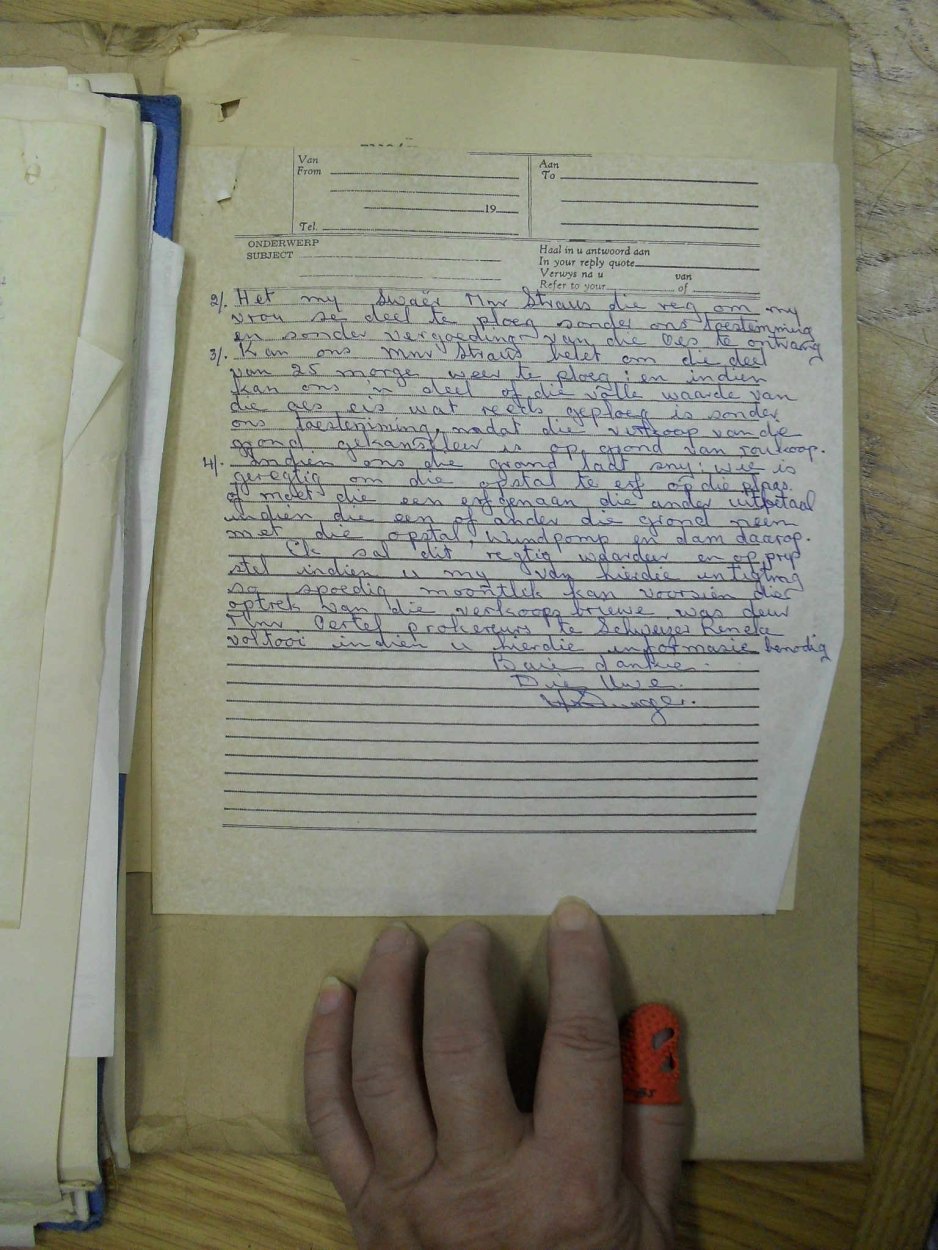 Van
From
19
Tel.
Aan
To
ONDERWERP
SUBJECT
Haal in u antwoord aan
In your reply quote
Verwys na u van
Refer to your of
2/. Het my Swaër Mnr Straus die reg om my
vrou se deel te ploeg sonder ons toestemming
en sonder vergoeding van die Oes te ontvang
3/. Kan ons mnr Straus belet om die deel
van 25 morge weer te ploeg: en indien
kan ons 'n deel of die volle waarde van
die oes eis wat reeds geploeg is sonder
ons toestemming, nadat die verkoop van die
grond gekanseleer is op grond van roukoop.
4/. Indien ons die grond laat sny: wie is
geregtig om die opstal te erf op die plaas.
of moet die een erfgenaam die ander uitbetaal
indien die een of ander die grond neem
met die opstal, windpomp en dam daarop.
Ek sal dit regtig waardeer en op prys
stel indien u my van hierdie inligting
so spoedig moontlik kan voorsien die
optrek van die verkoops briewe was deur
Mnr Oertel prokereurs te Schweizer Reneke
voltooi indien u hierdie informasie benodig
Baie dankie.
Die Uwe.